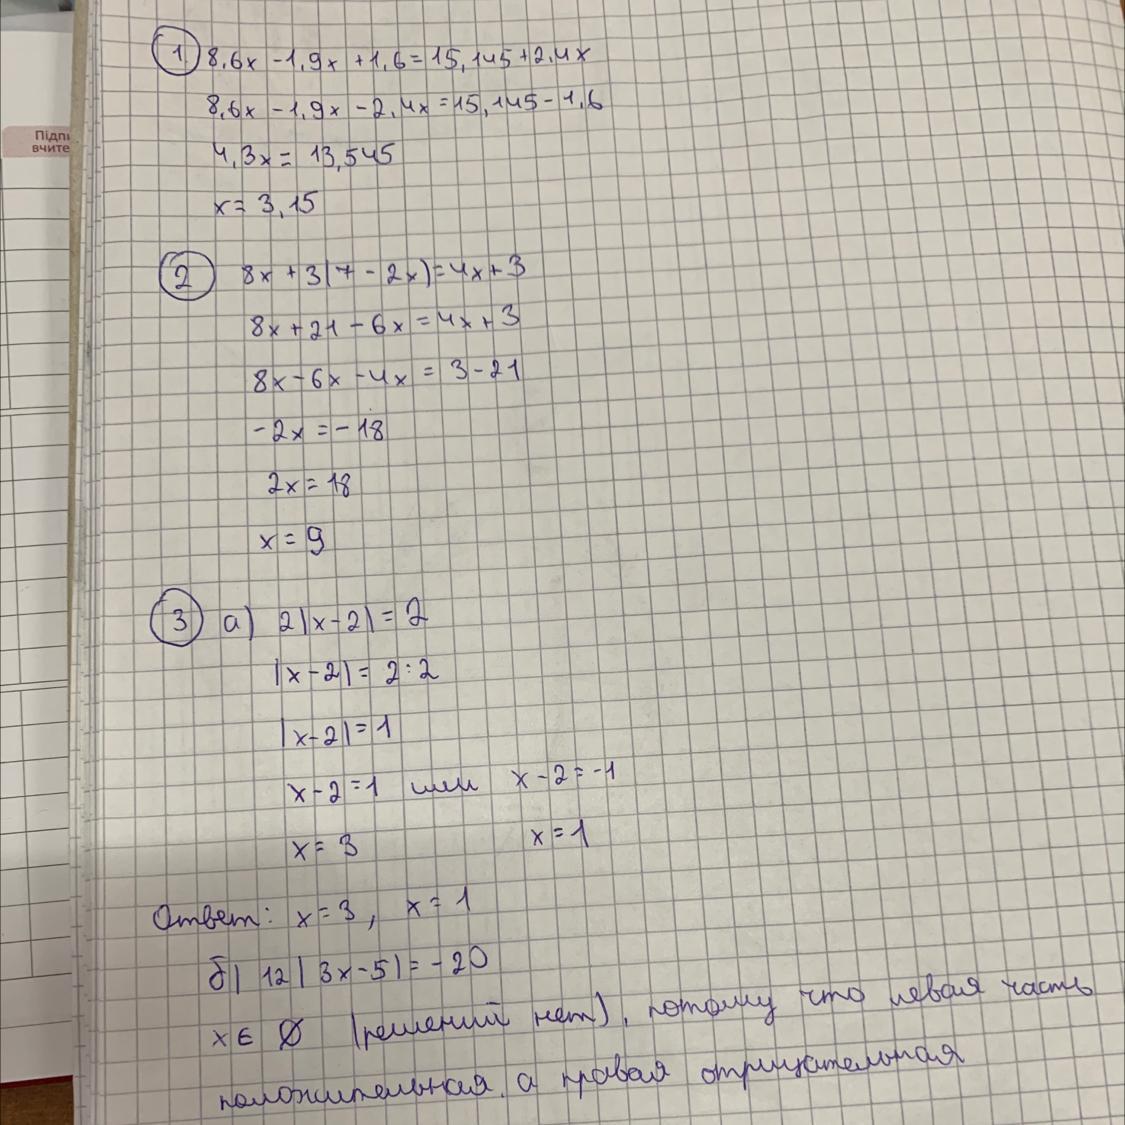 Підпи
вчите
1 8,6x - 1,9x + 1,6 = 15,145 + 2,4x
8,6x - 1,9x - 2,4x = 15,145 - 1,6
4,3x = 13,545
x = 3,15
2 8x + 3(7 - 2x) = 4x + 3
8x + 21 - 6x = 4x + 3
8x - 6x - 4x = 3 - 21
-2x = -18
2x = 18
x = 9
3 а) 2|x - 2| = 2
|x - 2| = 2 : 2
|x - 2| = 1
x - 2 = 1 или x - 2 = -1
x = 3 x = 1
Ответ: x = 3, x = 1
б) 12|3x - 5| = -20
x ∈ Ø (решений нет), потому что левая часть
положительная, а правая отрицательная